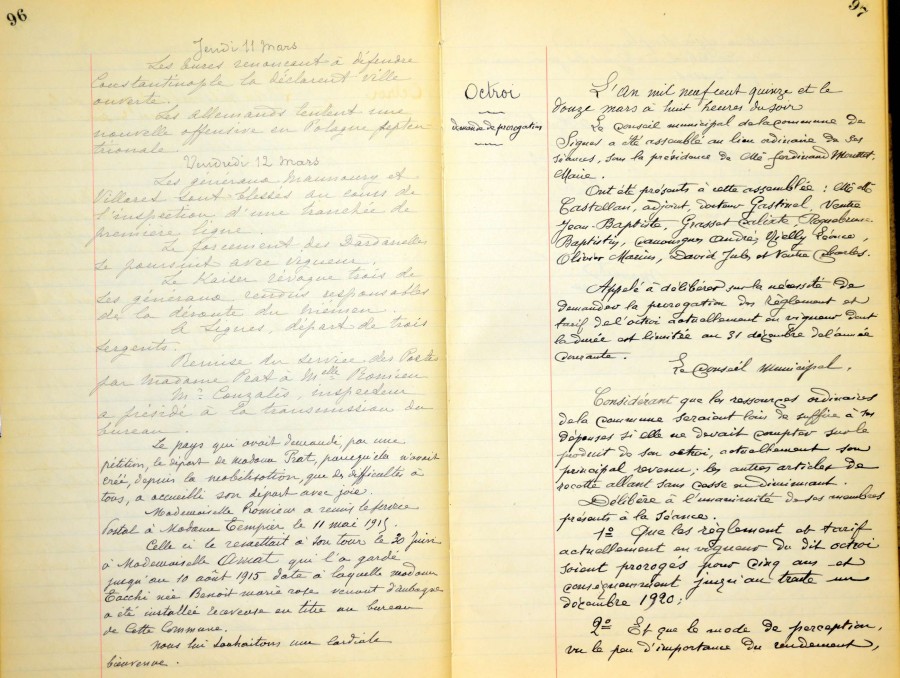 96
Jeudi 11 Mars
Les turcs renonçant à défendre
Constantinople la déclarent ville
ouverte.
Les allemands tentent une
nouvelle offensive en Pologne septen-
trionale
Vendredi 12 Mars
Les généraux Maunoury et
Villaret sont blessés au cours de
l'inspection d'une tranchée de
première ligne.
Le forcement des Dardanelles
se poursuit avec vigueur.
Le Kaiser révoque trois de
ses généraux rendus responsables
de la déroute du Niémen.
A Signes, départ de trois
sergents.
Remise du service des Postes
par Madame Prat à Melle Romieu
Mr Gonzalès, inspecteur
a présidé à la transmission du
bureau.
Le pays qui avait demandé, par une
pétition, le départ de Madame Prat, parcequ'elle n'avait
créé, depuis la mobilisation, que des difficultés à
tous, a accueilli son départ avec joie.
Mademoiselle Romieu a remis le service
Postal à Madame Tempier le 11 mai 1915.
Celle ci le remettait à son tour le 20 Juin
à Mademoiselle Amat qui l'a gardé
jusqu'au 10 août 1915 date à laquelle madame
Tacchi née Benoit marie rose venant d'aubagne
a été installée receveuse en titre au bureau
de cette Commune.
nous lui souhaitons une cordiale
bienvenue.
97
Octroi
demande de prorogation
L'An mil neuf cent quinze et le
douze mars à huit heures du soir
Le Conseil municipal de la commune de
Signes a été assemblé au lieu ordinaire de ses
séances, sous la présidence de Me Ferdinand
Maire.
Ont été présents à cette assemblée : MM
Castellan, adjoint, docteur Gastinel, Ventre
Jean-Baptiste, Grasset Calixte, Roquebrune
Baptistin, André, Léonce,
Olivier Marius, David Jules et Ventre Charles.
Appelé à délibérer sur la nécessité de
demander la prorogation des règlement et
tarif de l'octroi actuellement en vigueur dont
la durée est limitée au 31 décembre de l'année
courante.
Le Conseil Municipal,
Considérant que les ressources ordinaires
de la commune seraient loin de suffire à ses
dépenses si elle ne devait compter sur le
produit de son octroi, actuellement son
principal revenu ; les autres articles de
recette allant sans cesse en diminuant.
Délibère à l'unanimité de ses membres
présents à la séance.
1º Que les règlement et tarif
actuellement en vigueur du dit octroi
soient prorogés pour cinq ans et
conséquemment jusqu'au trente un
décembre 1920 ;
2º Et que le mode de perception,
vu le peu d'importance du rendement,